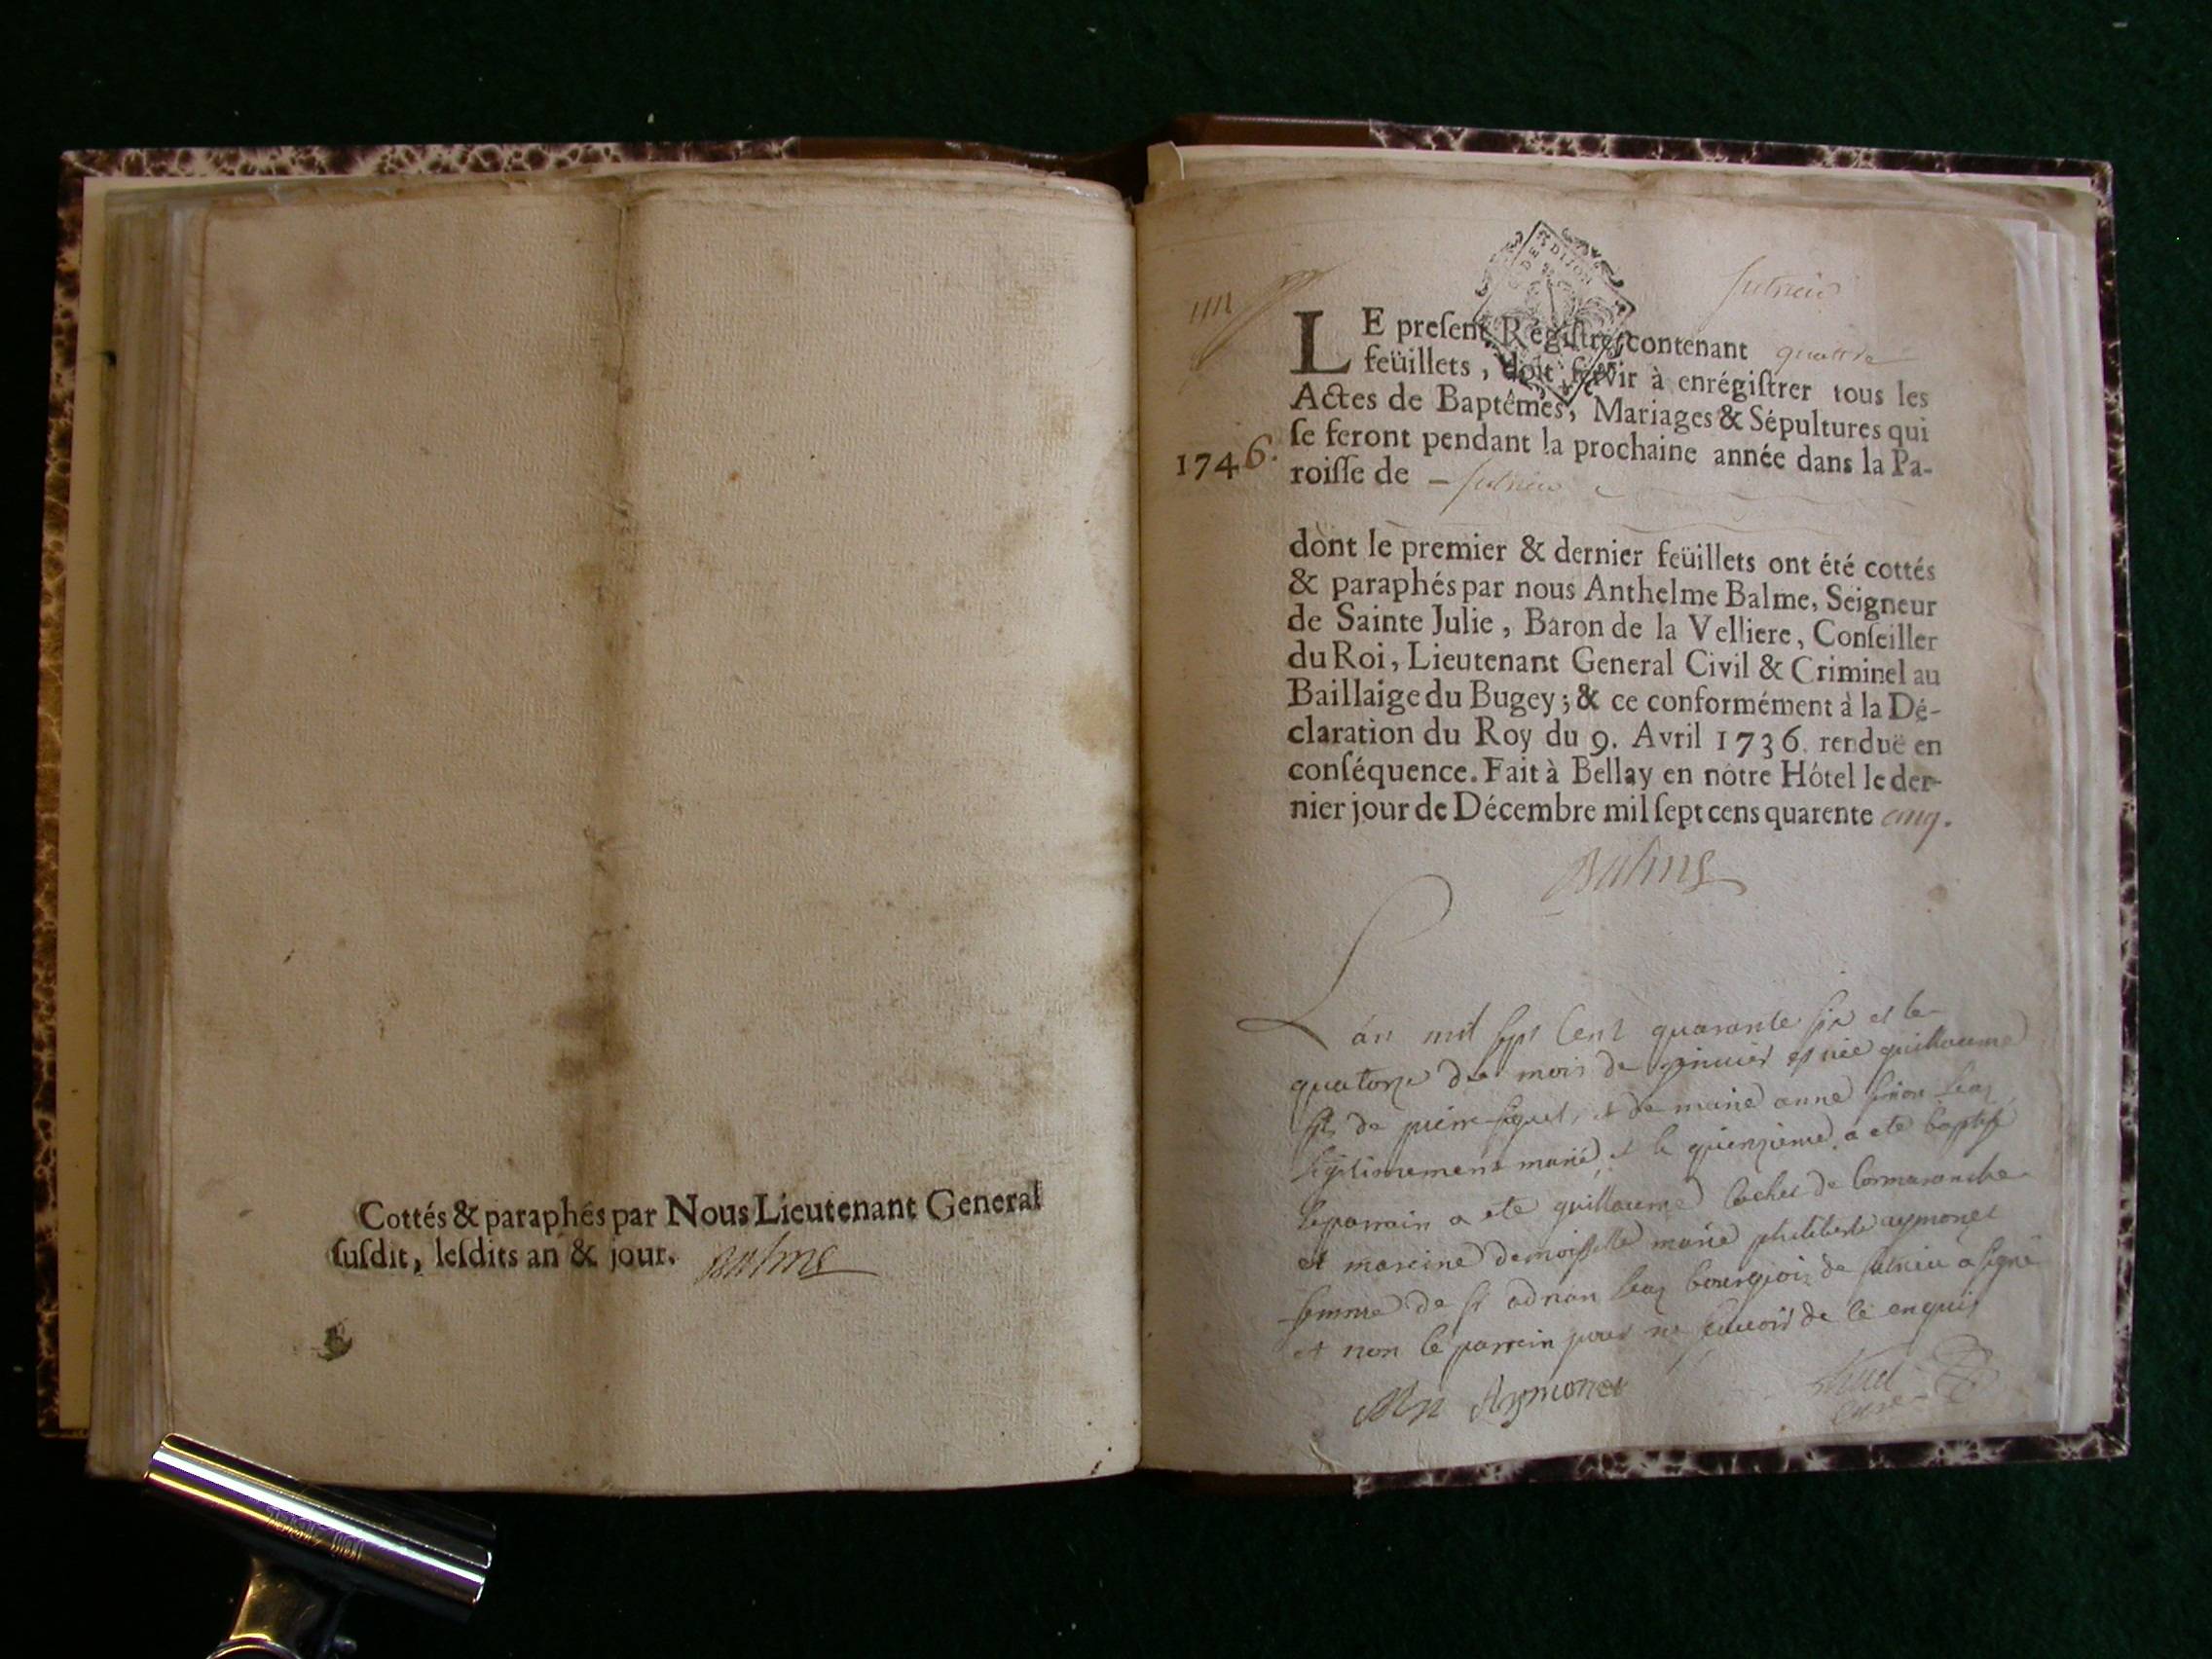 Cottés & paraphés par Nous Lieutenant General
ſuſdit, leſdits an & jour. Balme
Sutrieu
LE preſent Régiſtre, contenant quattre
feüillets, doit ſervir à enrégiſtrer tous les
Actes de Baptêmes, Mariages & Sépultures qui
1746. ſe feront pendant la prochaine année dans la Pa-
roiſſe de – Sutrieu
dont le premier & dernier feüillets ont été cottés
& paraphés par nous Anthelme Balme, Seigneur
de Sainte Julie, Baron de la Velliere, Conſeiller
du Roi, Lieutenant General Civil & Criminel au
Baillaige du Bugey; & ce conformément à la Dé-
claration du Roy du 9. Avril 1736. renduë en
conſéquence. Fait à Bellay en nôtre Hôtel le der-
nier jour de Décembre mil ſept cens quarente cinq.
Balme
Lan mil sept cent quarante six et le
quatorze du mois de est née guillaume
fils de pierre et de marie anne
legitimement marié, et le quienzieme a ete baptisé
le parrain a ete guillaume de Cormaranche
et mareine demoiselle marie philiberte aymonet
femme de sr adrian bourgiois de sutrieu a signé
et non le parrein pour ne de ce enquis
Aymonet
curé